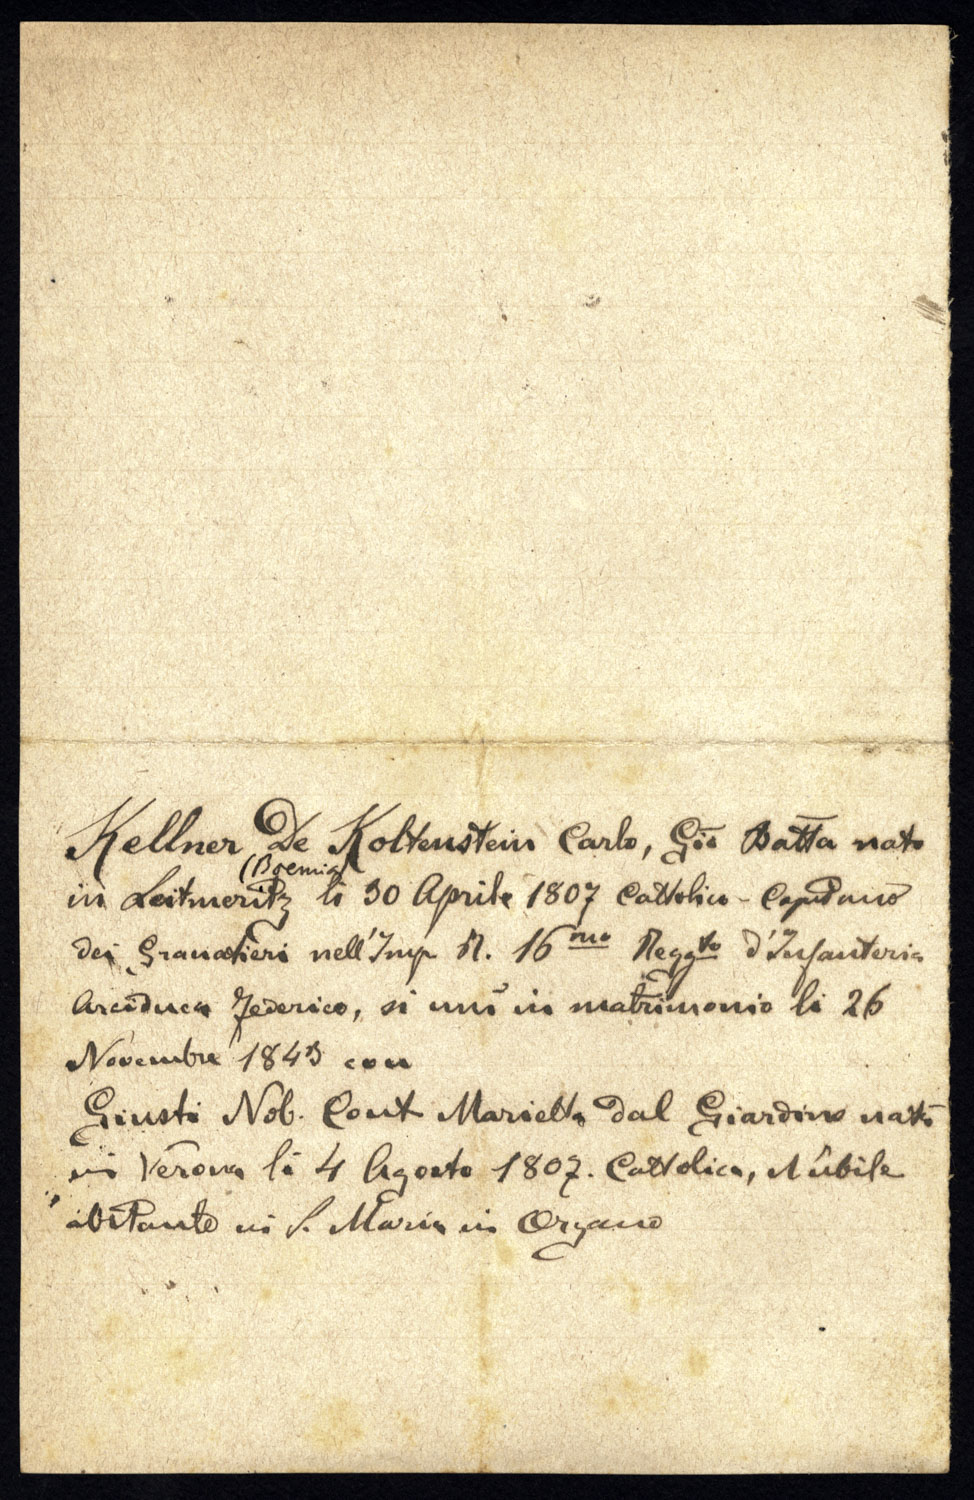 Kellner De Koltenstein Carlo, Gio Batta nato
(Boemia)
in Leitmeritz li 30 Aprile 1807 Cattolico - Capitano
dei Granatieri nell'Imp R. 16mo Reggto d'Infanteria
Arciduca Federico, si unì in matrimonio li 26
Novembre 1843 con
Giusti Nob. Cont Marietta dal Giardino nata
in Verona li 4 Agosto 1807. Cattolica, Nubile
abitante in S. Maria in Organo